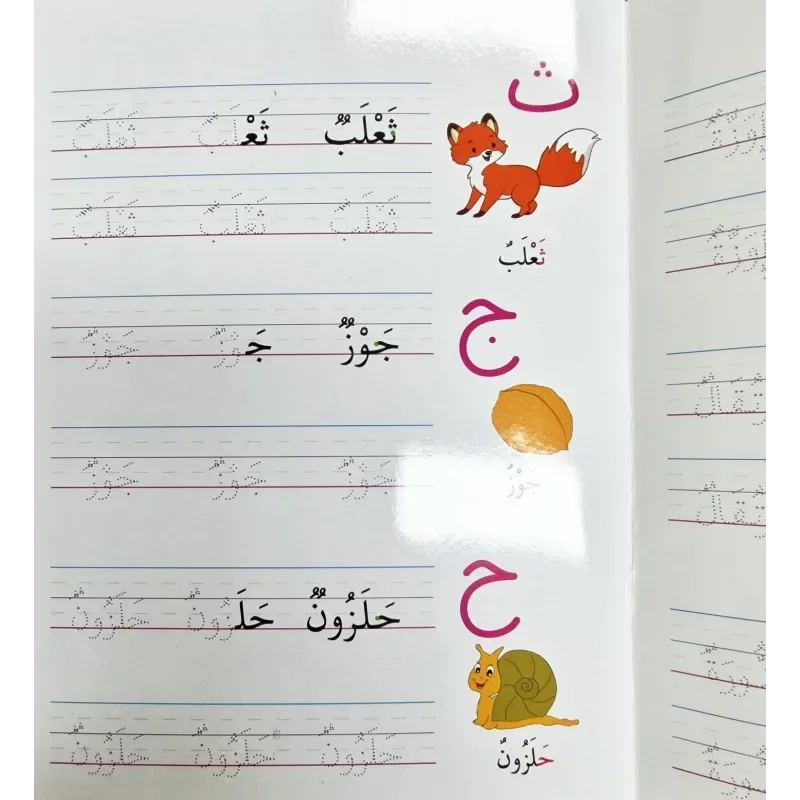 ث
ثَعْلَبٌ ثَعْلَبٌ ثَعْلَبٌ
ثَعْلَبٌ ثَعْلَبٌ ثَعْلَبٌ
ثَعْلَبٌ
ج
جَوْزٌ جَوْزٌ جَوْزٌ
جَوْزٌ جَوْزٌ جَوْزٌ
جَوْزٌ
ح
حَلَزُونٌ حَلَزُونٌ حَلَزُونٌ
حَلَزُونٌ
حَلَزُونٌ حَلَزُونٌ حَلَزُونٌ